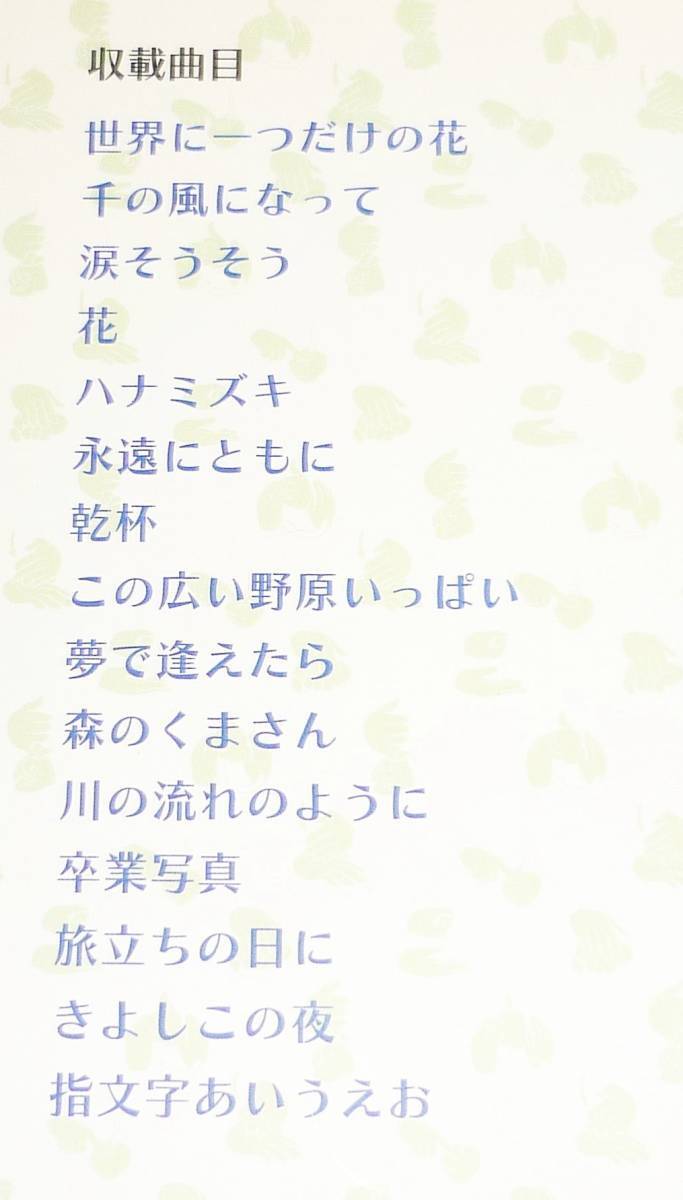 収載曲目
世界に一つだけの花
千の風になって
涙そうそう
花
ハナミズキ
永遠にともに
乾杯
この広い野原いっぱい
夢で逢えたら
森のくまさん
川の流れのように
卒業写真
旅立ちの日に
きよしこの夜
指文字あいうえお